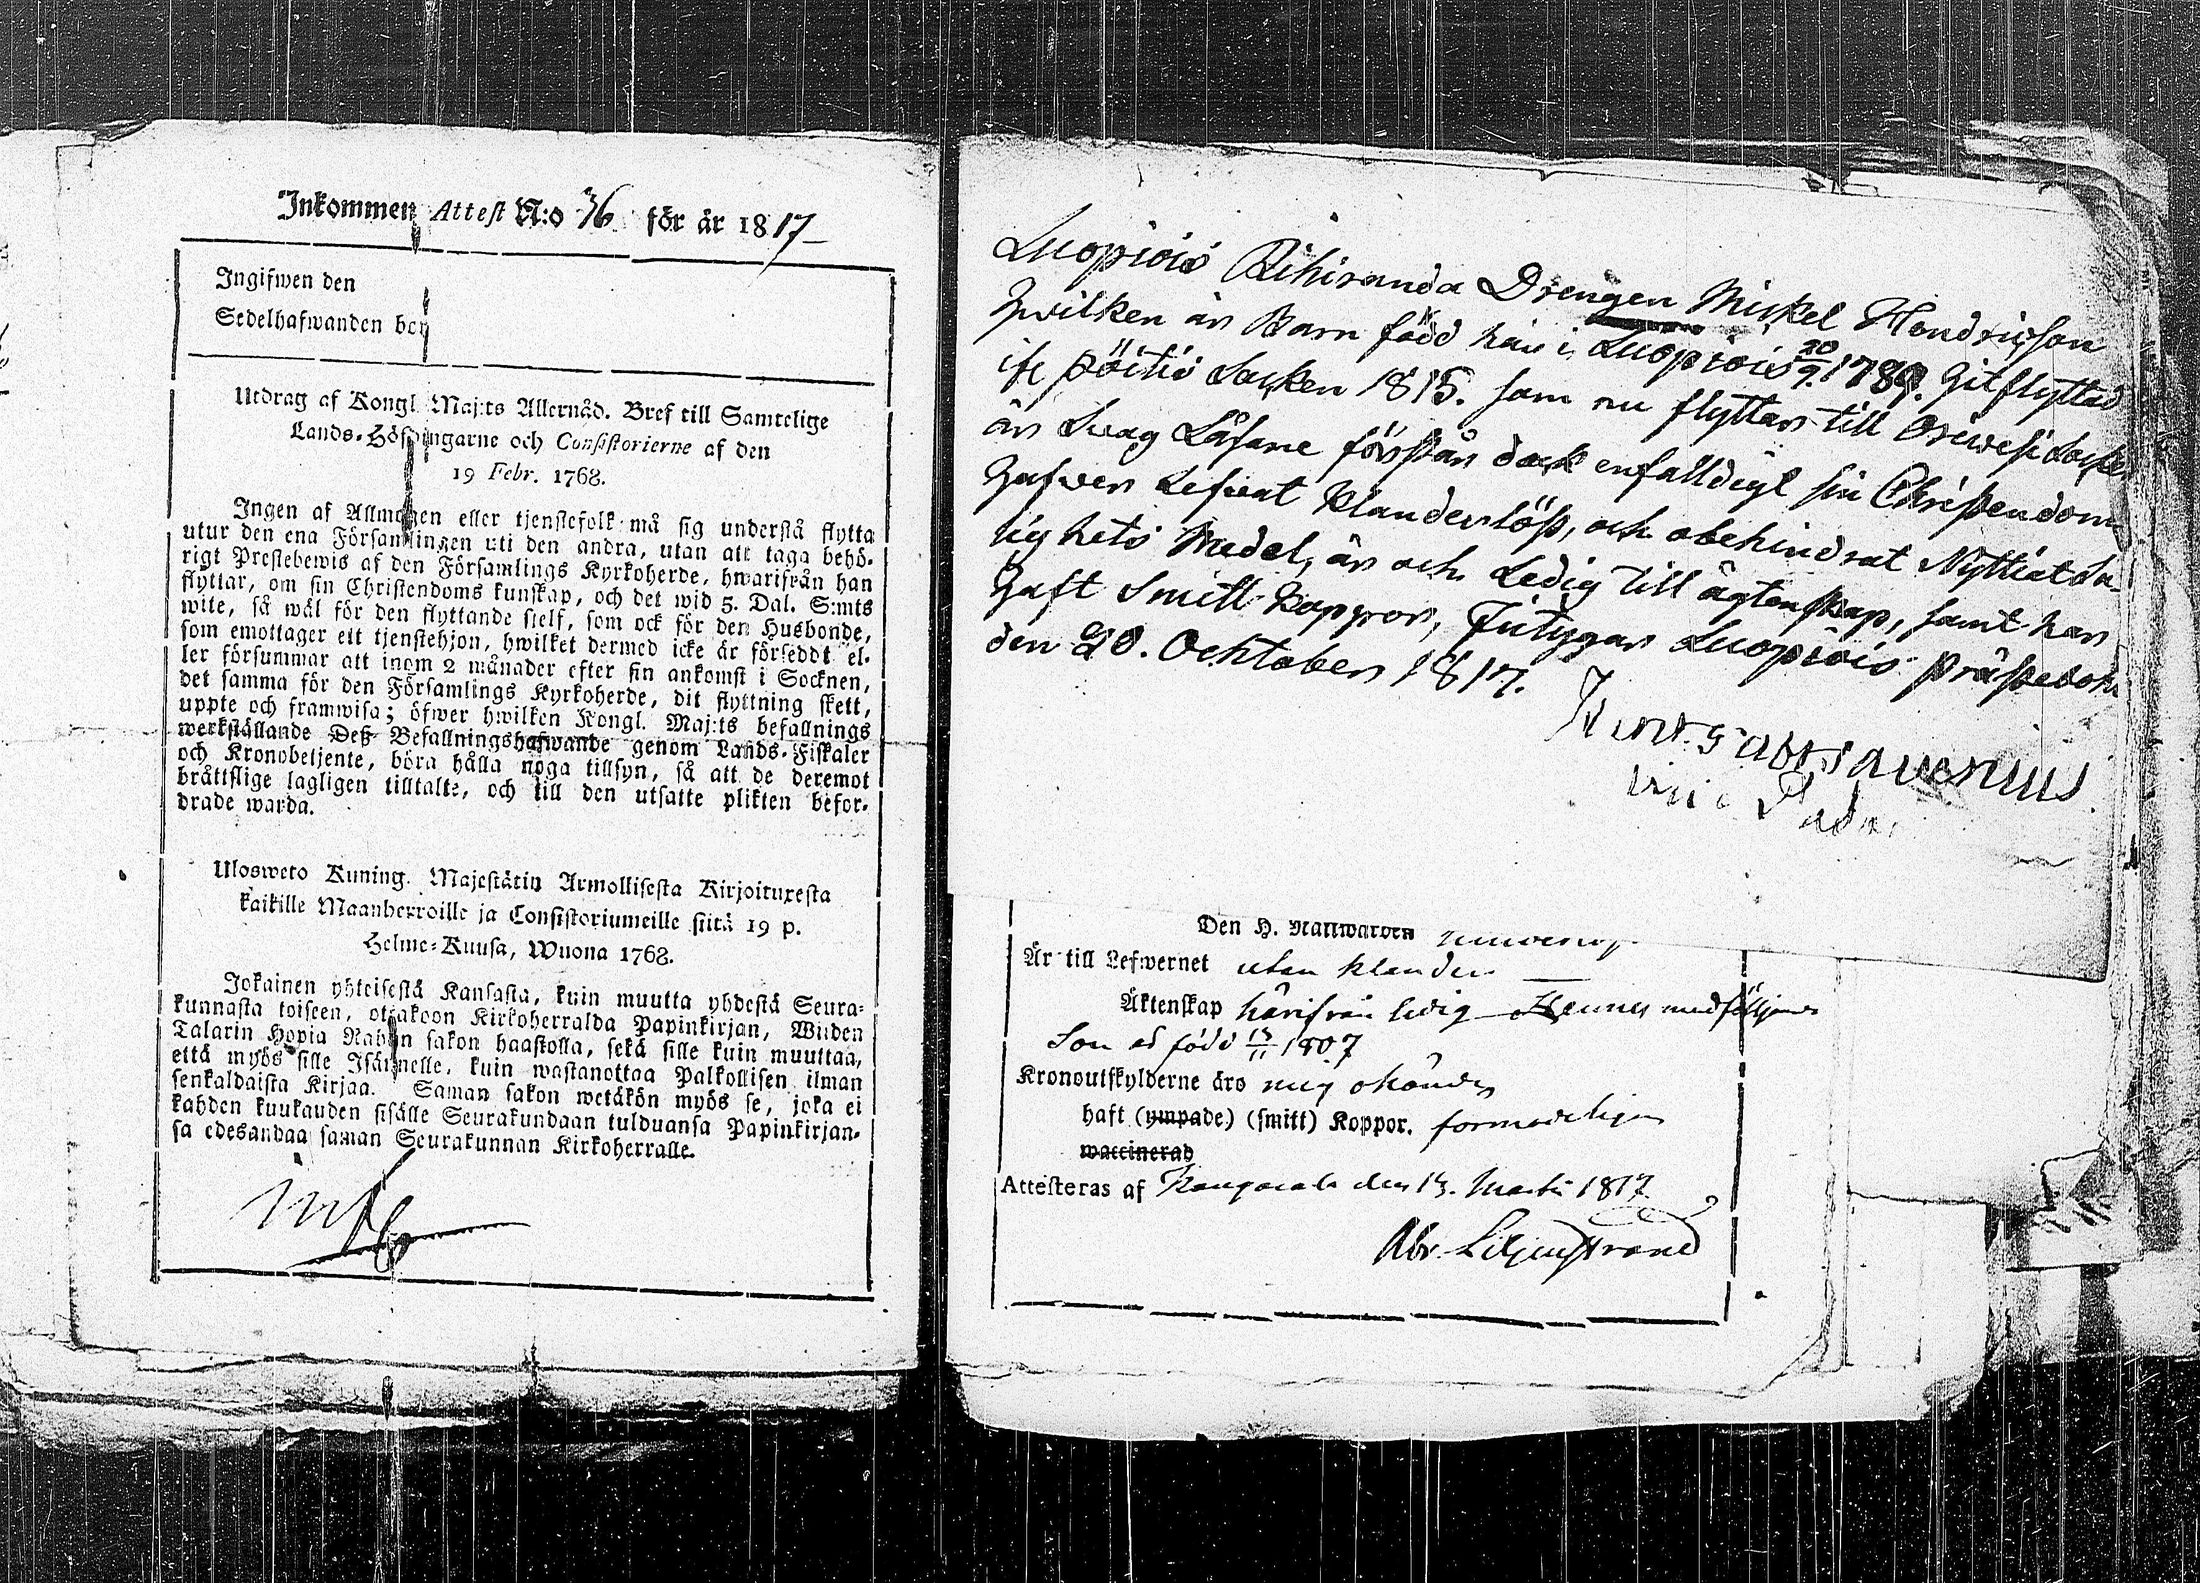 Inkommen Attest N:o 36 för år 1817
Ingifwen den
Sedelhafwanden bor
Utdrag af Kongl. Maj:ts Allernåd. Bref till Samtelige
Lands-Höfdingarne och Consistorierne af den
19 Febr. 1768.
Ingen af Allmogen eller tjenstefolk må sig understå flytta
utur den ena Församlingen uti den andra, utan att taga behö-
rigt Prestebewis af den Församlings Kyrkoherde, hwarifrån han
flyttar, om sin Christendoms kunskap, och det wid 5. Dal. S:mts
wite, så wäl för den flyttande sielf, som ock för den Husbonde,
som emottager ett tjenstehjon, hwilket dermed icke är förseddt el-
ler försummar att inom 2 månader efter sin ankomst i Socknen,
det samma för den Församlings Kyrkoherde, dit flyttning skett,
uppte och framwisa; öfwer hwilken Kongl. Maj:ts befallnings
werkställande Deß Befallningshafwande genom Lands-Fiskaler
och Kronobetjente, böra hålla noga tillsyn, så att de deremot
bråttslige lagligen tilltalte, och till den utsatte plikten befor-
drade warda.
Ulosweto Kuning. Majestätin Armollisesta Kirjoituxesta
kaikille Maanherroille ja Consistoriumeille siitä 19 p.
Helme-Kuusa, Wuona 1768.
Jokainen yhteisestä Kansasta, kuin muutta yhdestä Seura-
kunnasta toiseen, ottakoon Kirkoherralda Papinkirjan, Wiiden
Talarin Hopia Rahan sakon haastolla, sekä sille kuin muuttaa,
että myös sille Isännelle, kuin wastanottaa Palkollisen ilman
senkaldaista Kirjaa. Saman sakon wetäkön myös se, joka ei
kahden kuukauden sisälle Seurakundaan tulduansa Papinkirjan-
sa edesandaa saman Seurakunnan Kirkoherralle.
Luopiois Rihiranda Drengen Mickel Hendricson
hvilken är Barn född här i Luopiois 20/9 1789. hitflyttad
ifr pöitis Socken 1815. som nu flyttar till Oriwesi Socken
är Swag Läsare förstår dock enfalldigt sin Christendom
hafver Lefwat Klanderlöst, och obehindrat Nyttiat Sa-
lighets Medel, är och Ledig till ägtenskap, samt har
haft Smitt Koppor, Intygar Luopiois präste
den 20. Ochtober 1817.
Den H. Nattwarden
Är till Lefwernet utan klander
Äktenskap härifrån ledig Hennes medföljande
Son är född 13/11 1807
Kronoutskylderne äro mig okände
haft (ympade) (smitt) Koppor. formodeligen
waccinerad
Attesteras af Kangasala den 13. Martii 1817
Abr. Liljenstrand